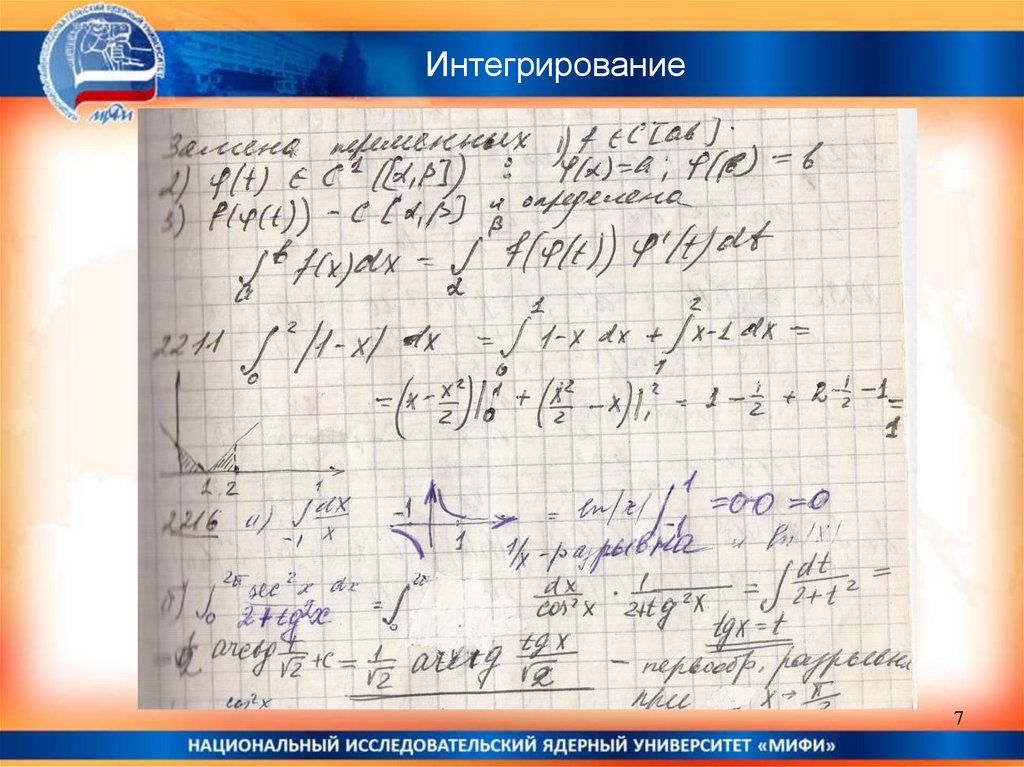 Интегрирование
Замена переменных 1) f ∈ C[ab].
2) φ(t) ∈ C¹ ([α,β]) : φ(α)=a; φ(β) = b
3) f(φ(t)) – C [α,β] и определена
∫ₐᵇ f(x)dx = ∫_α^β f(φ(t)) φ'(t)dt
2211 ∫₀² |1-x| dx = ∫₀¹ 1-x dx + ∫₁² x-1 dx =
= (x - x²/2)|₀¹ + (x²/2 - x)|₁² = 1 - 1/2 + 2 - 1/2 - 1 = 1
1 2
2216 а) ∫₋₁¹ dx/x -1 1 = ln|x| ∫₋₁¹ =0-0 =0
1/x - разрывна и ln |x|
б) ∫₀^2π sec²x dx / 2+tg²x = ∫₀^2π dx/cos²x · 1/2+tg²x = ∫ dt/2+t² =
tgx = t
arctg t/√2 + c = 1/√2 arctg tgx/√2 – первообр. разрывна
cos²x при x → π/2
7
НАЦИОНАЛЬНЫЙ ИССЛЕДОВАТЕЛЬСКИЙ ЯДЕРНЫЙ УНИВЕРСИТЕТ «МИФИ»